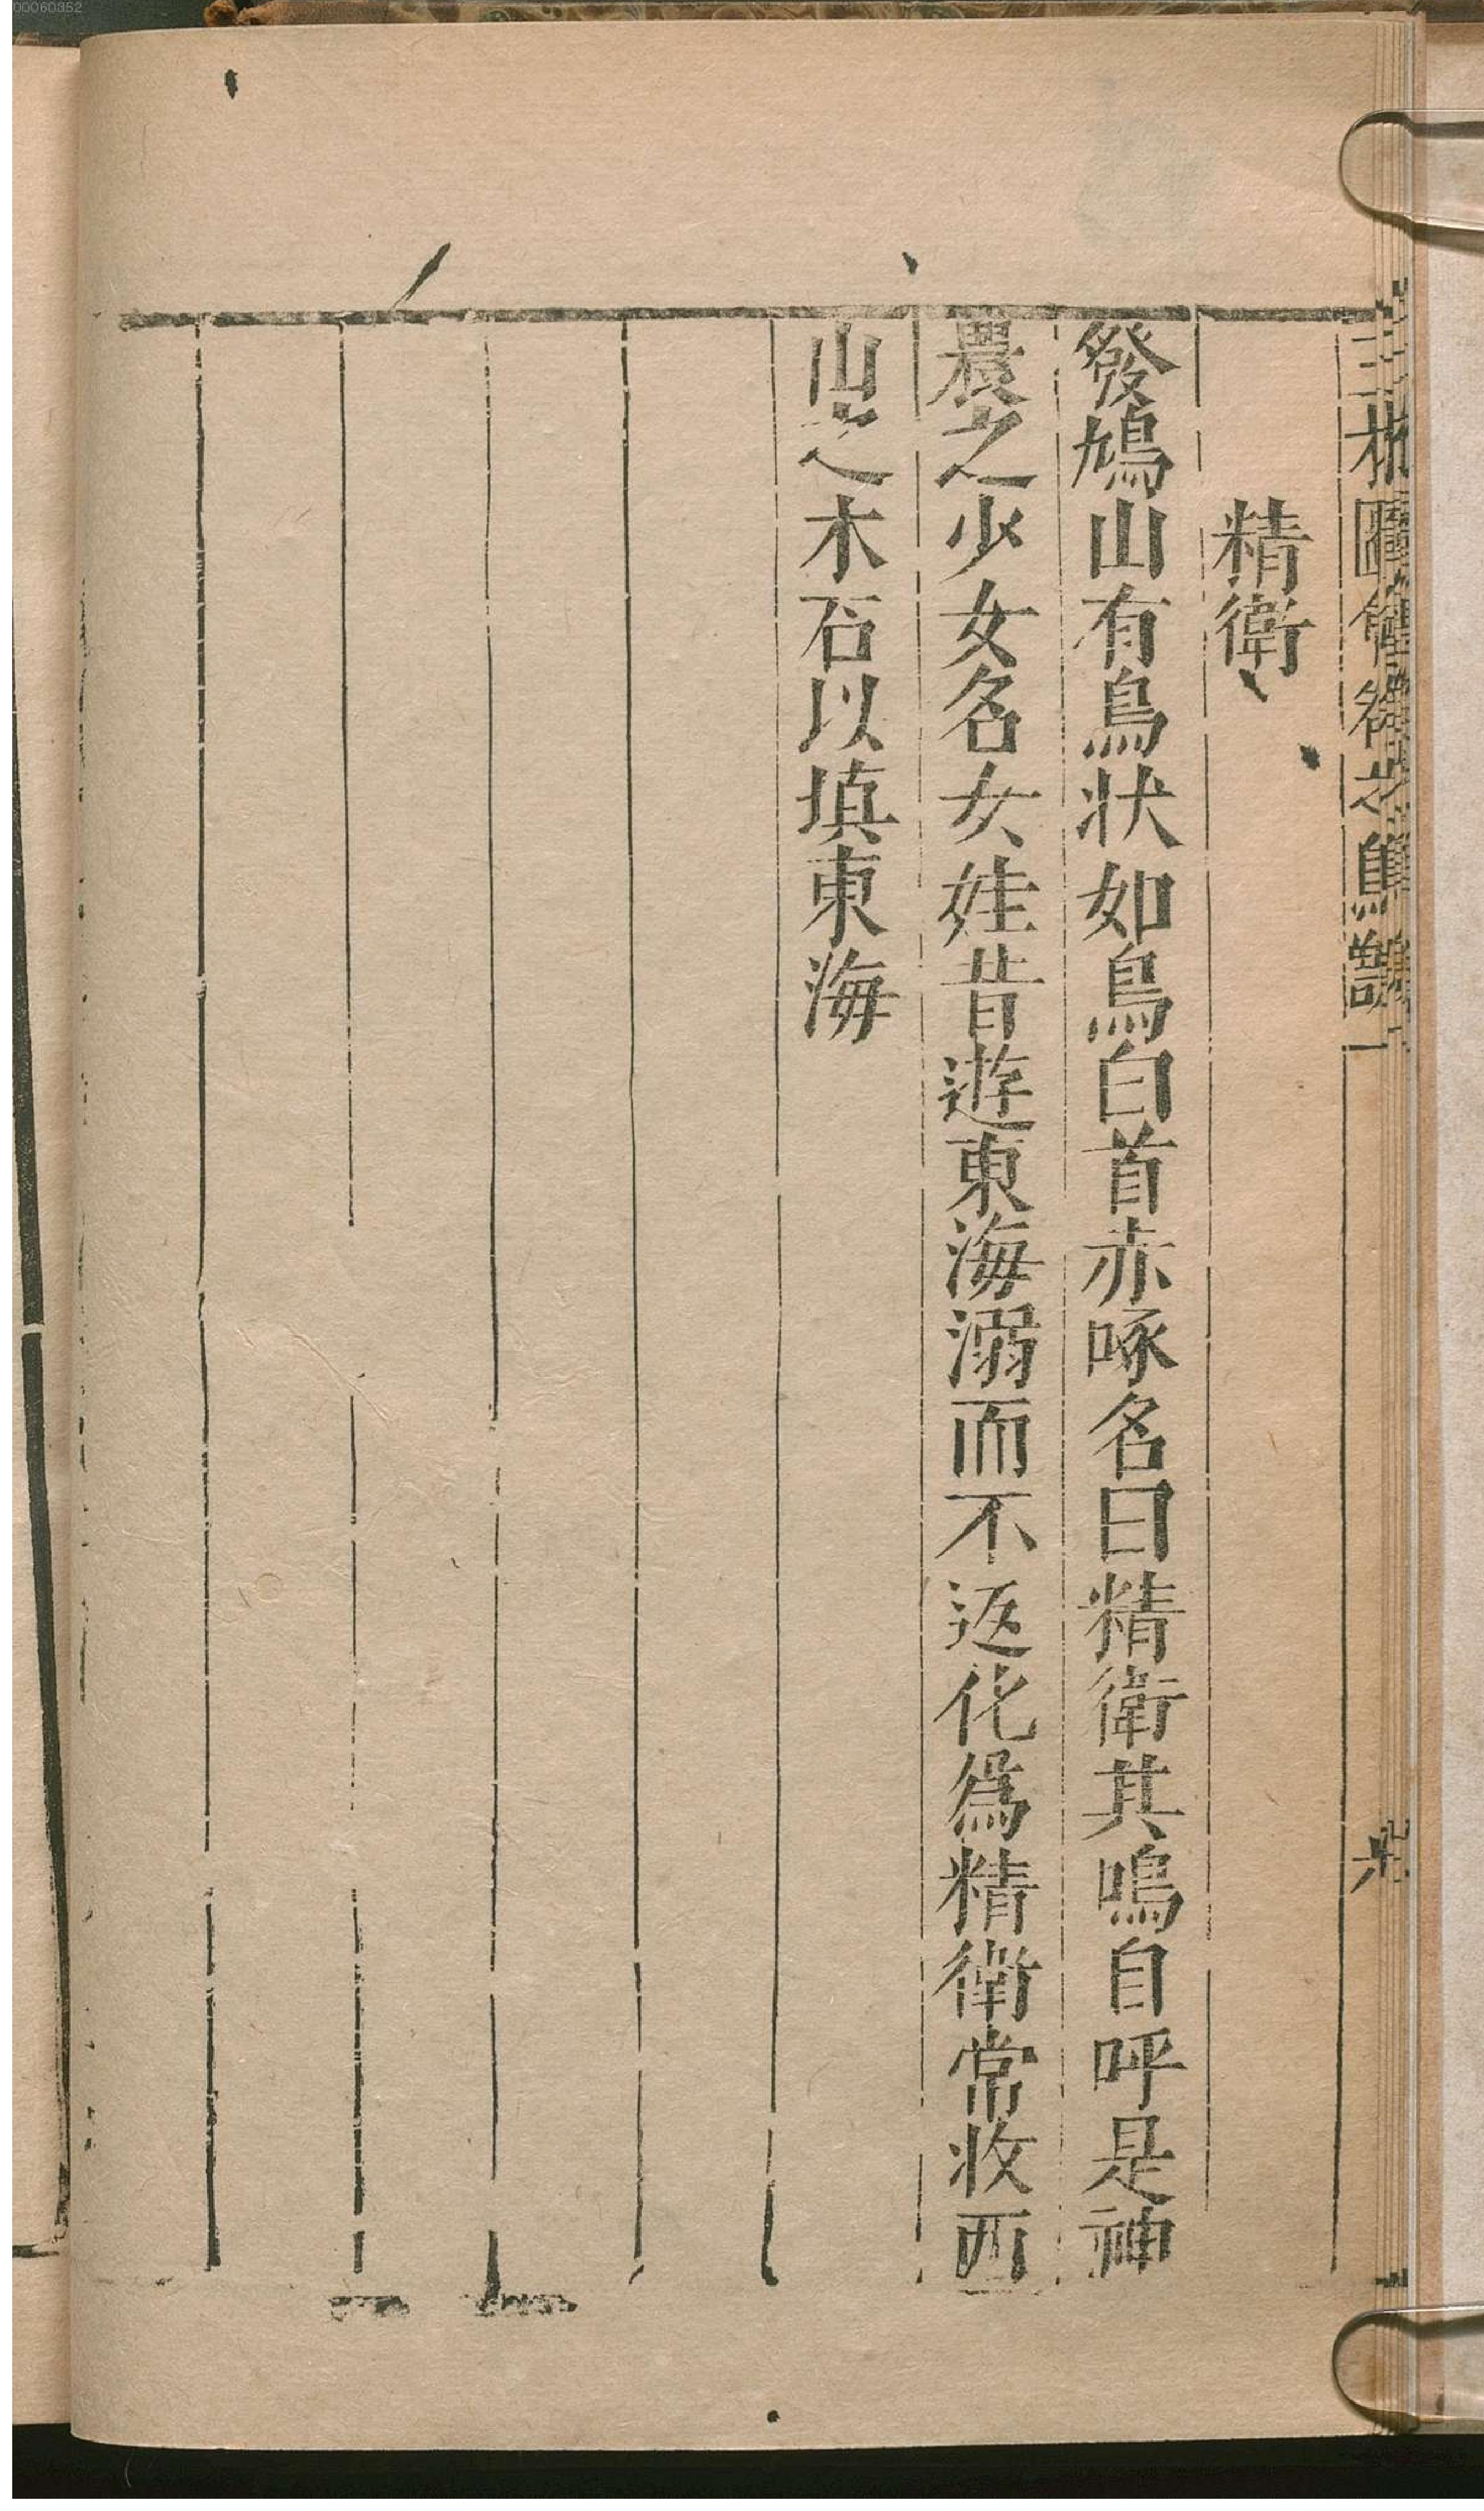 00060352
精衛
發鳩山有鳥狀如鳥白首赤啄名曰精衛其鳴自呼是神
農之少女名女娃昔遊東海溺而不返化為精衛常收西
山之木石以填東海